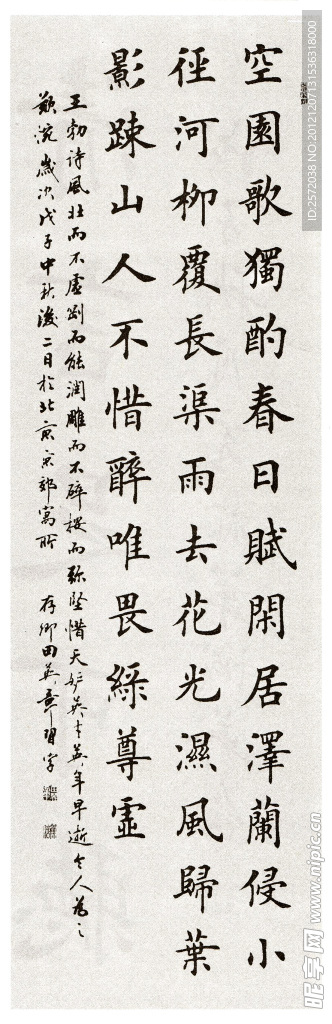 空園歌獨酌春日賦閑居澤蘭侵小
徑河柳覆長渠雨去花光濕風歸葉
影疎山人不惜醉唯畏綠尊虛
王勃詩風壯而不虛剛而能潤雕而不碎按而弥堅惜天妒英才英年早逝令人為之
歎惋歲次戊子中秋後二日於北京京郊寓所 存卿田英章習字
ID:2572038 NO:20121207131536318000
昵享网 www.nipic.cn